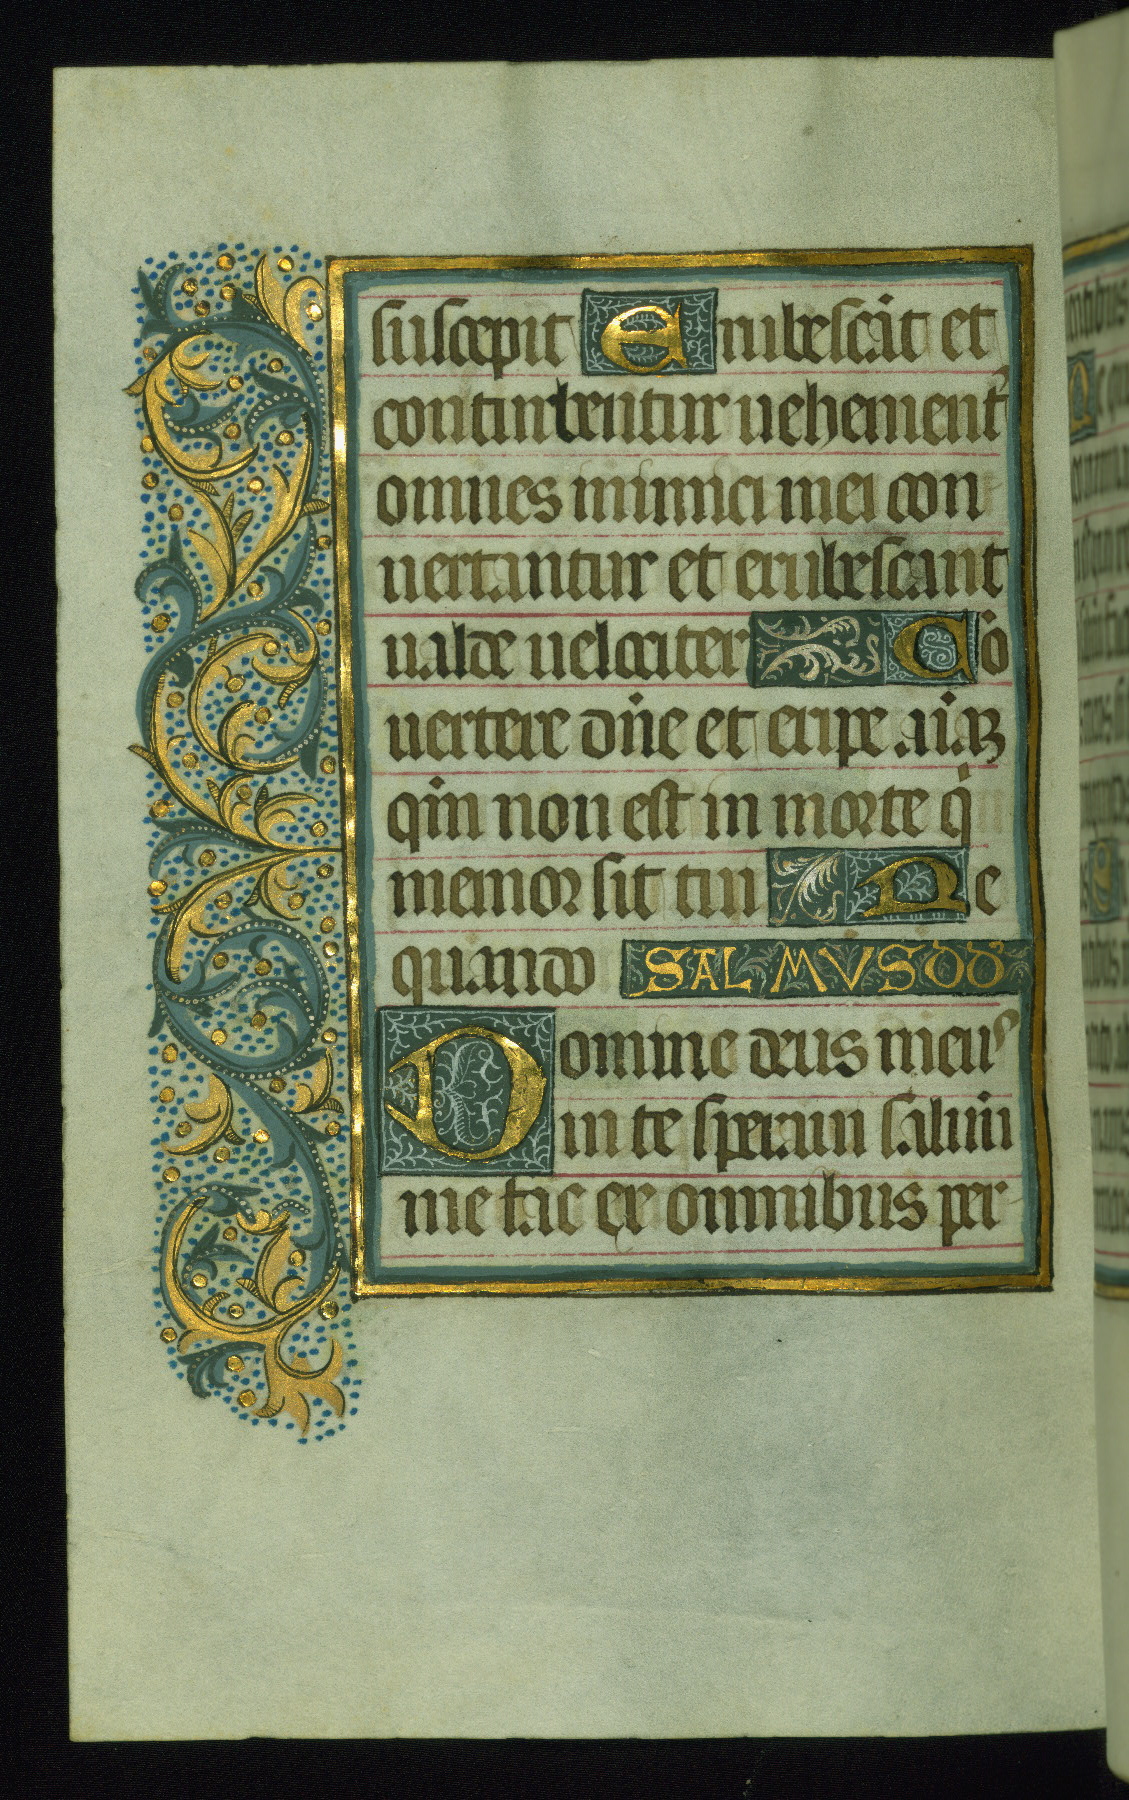 suscepit Erubescāt et
conturbentur uehementˀ
omnes inimici mei con
uertantur et erubescant
ualde uelociter Cō
uertere dn̄e et eripe aīaꝫ
qm̄ non est in morte q̇
memor sit tui Ne
quando SALMUS dd̄
Domine deus meuꝰ
in te speraui saluū
me fac ex omnibus per